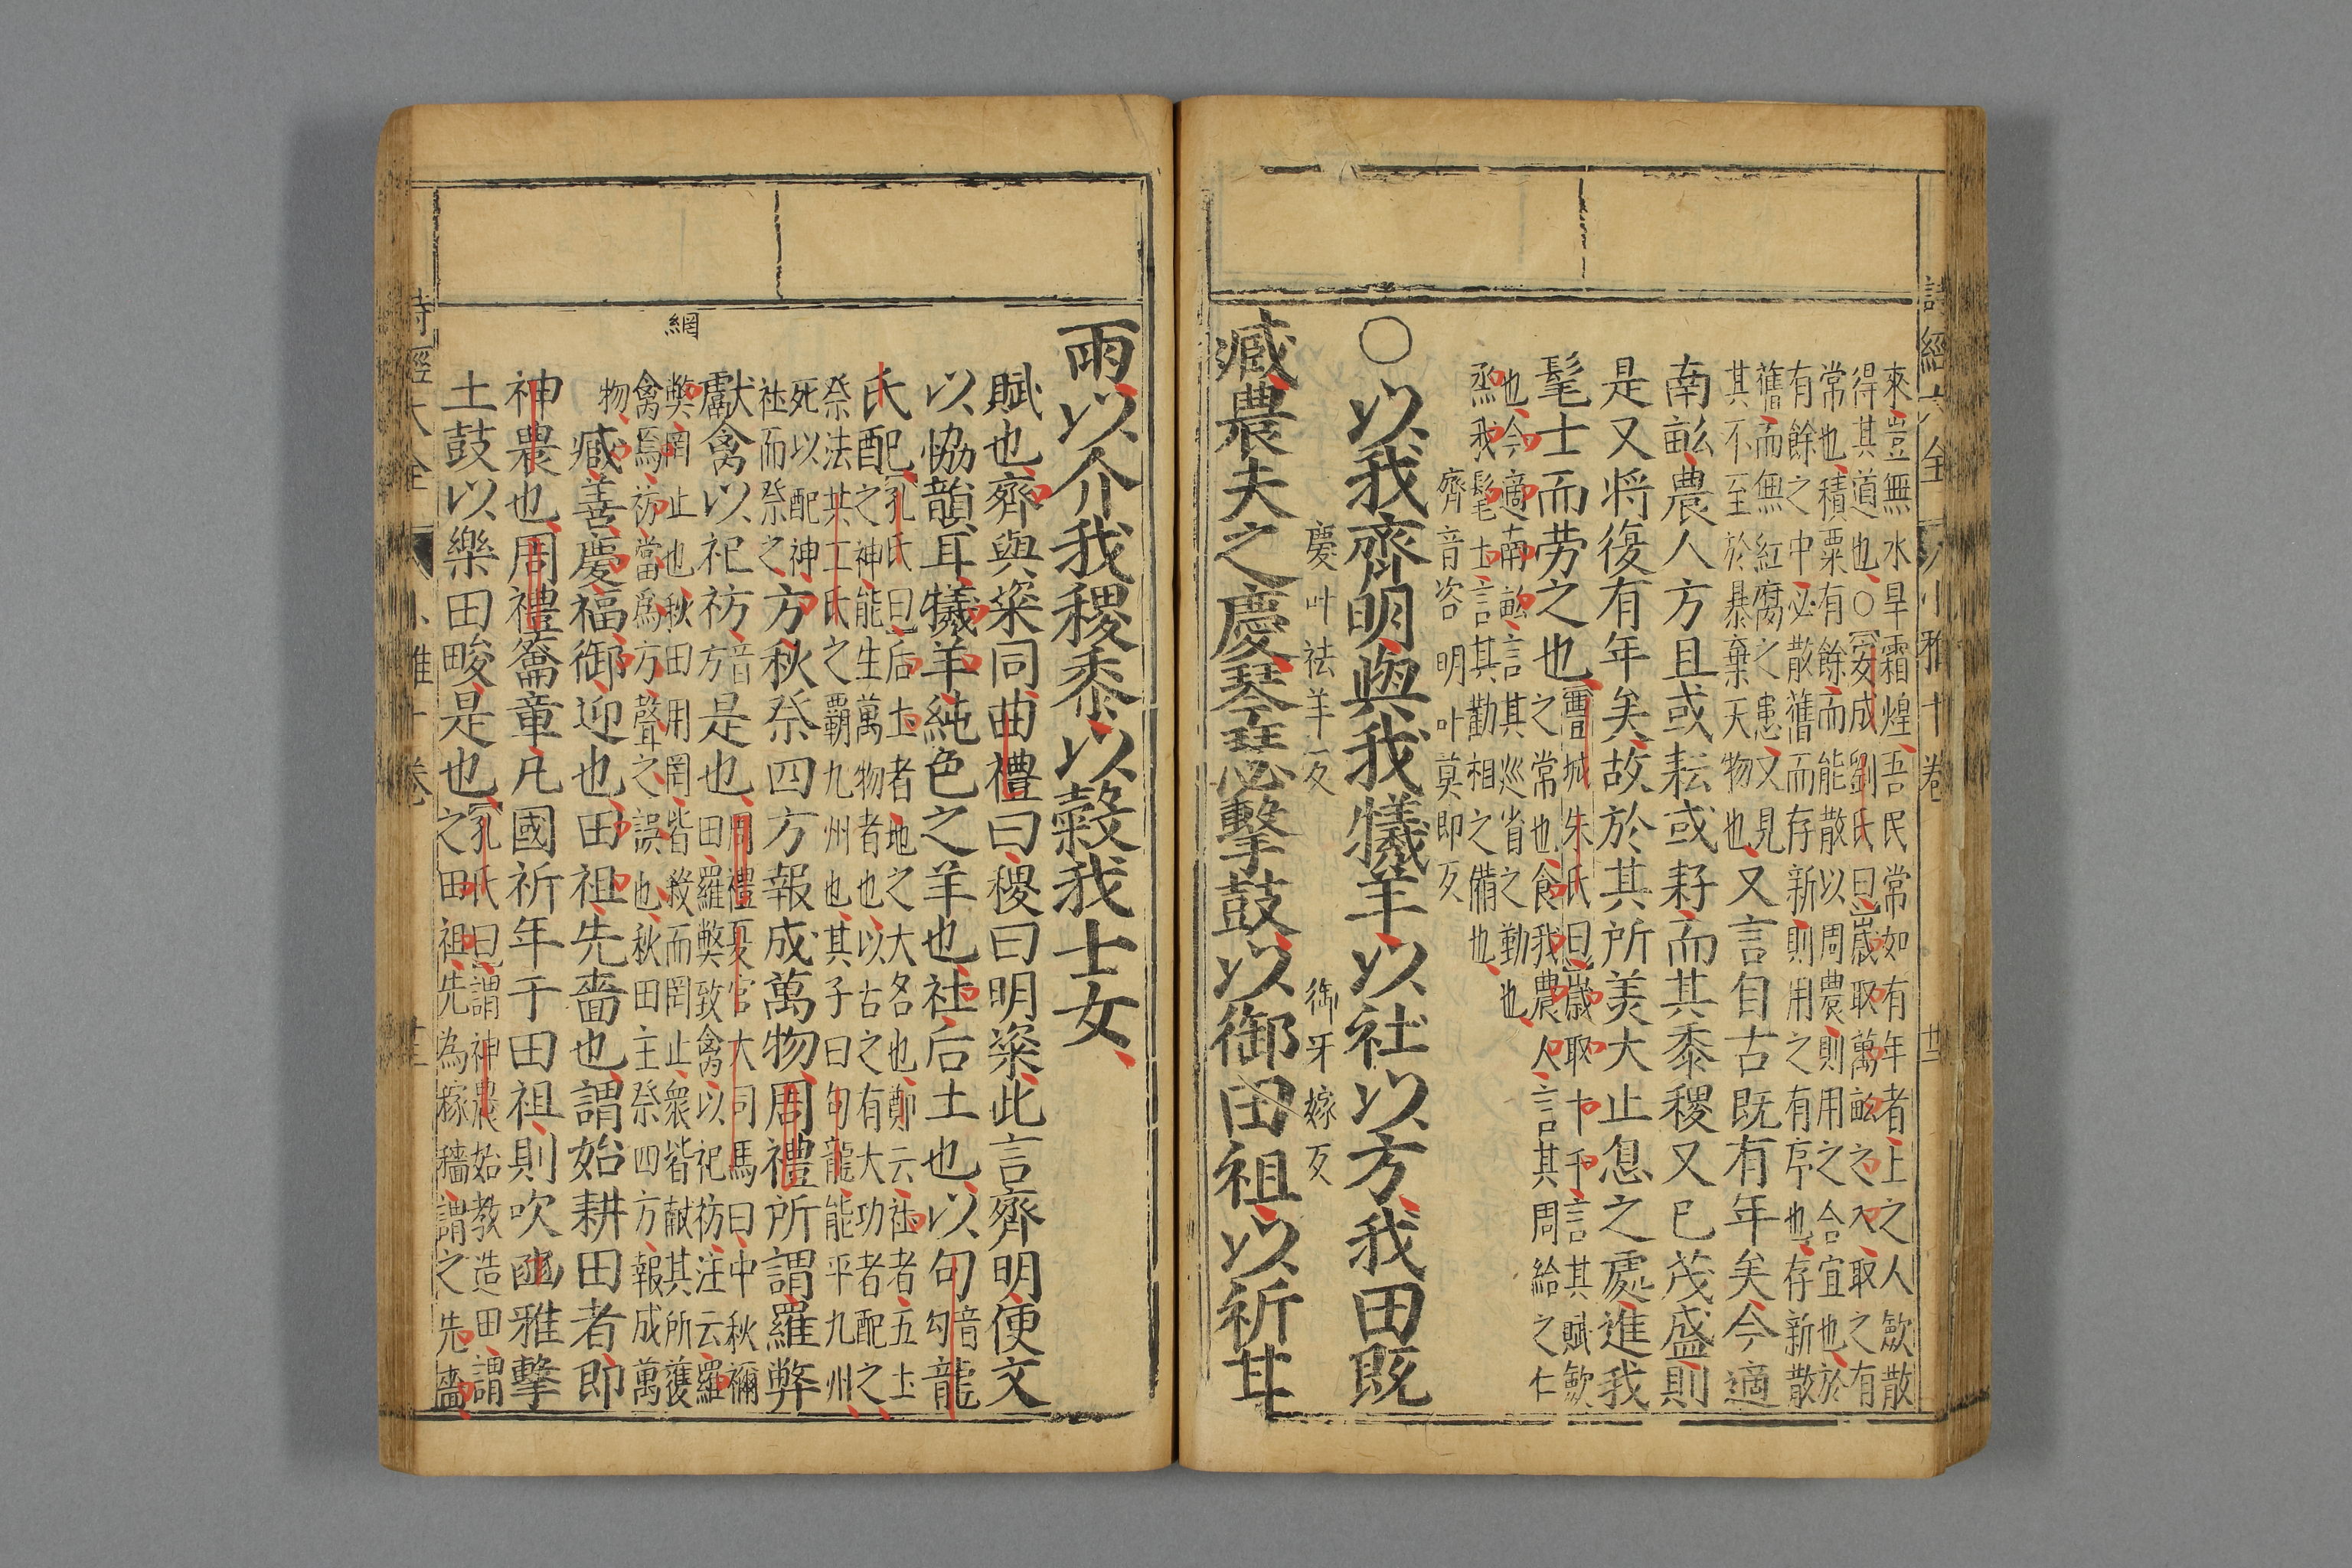 詩經大全 小雅十卷 廿二
來豈無水旱霜煌吾民常如有年者上之人歛散
得其道也○安成劉氏曰歲取萬畝之入取之有
常也積粟有餘而能散以周農則用之合宜也於
有餘之中必散舊而存新則用之有序也存新散
舊而無紅腐之患又見
其不至於暴棄天物也
又言自古既有年矣今適
南畝農人方且或耘或耔而其黍稷又已茂盛則
是又將復有年矣故於其所美大止息之處進我
髦士而劳之也
豊城朱氏曰歲取十千言其賦歛
之常也食我農人言其周給之仁
也今適南畝言其巡省之勤也
烝我髦士言其勸相之備也
齊音咨 明叶莫即反
○以我齊明與我犠羊以社以方我田既
慶叶袪羊反 御牙嫁反
臧農夫之慶琴瑟擊鼓以御田祖以祈甘
雨以介我稷黍以穀我士女
賦也齊與粢同曲禮曰稷曰明粢此言齊明便文
以協韻耳犠羊純色之羊也社后土也以句音勾龍
氏配
孔氏曰后土者地之大名也鄭云社者五土
之神能生萬物者也以古之有大功者配之
祭法共工氏之霸九州也其子曰句龍能平九州
死以配神
社而祭之
方秋祭四方報成萬物周禮所謂羅弊
獻禽以祀祊音方是也
周禮夏官大司馬曰中秋禰
田羅弊致禽以祀祊注云羅
網
弊罔止也秋田用罔罔皆殺而罔止衆皆献其所獲
禽焉祊當爲方聲之誤也秋田主祭四方報成萬
物
臧善慶福御迎也田祖先嗇也謂始耕田者即
神農也周禮籥章凡國祈年于田祖則吹豳雅擊
土鼓以樂田畯是也
孔氏曰謂神農始教造田謂
之田祖先為稼穡謂之先嗇
詩經大全 小雅十卷 廿三